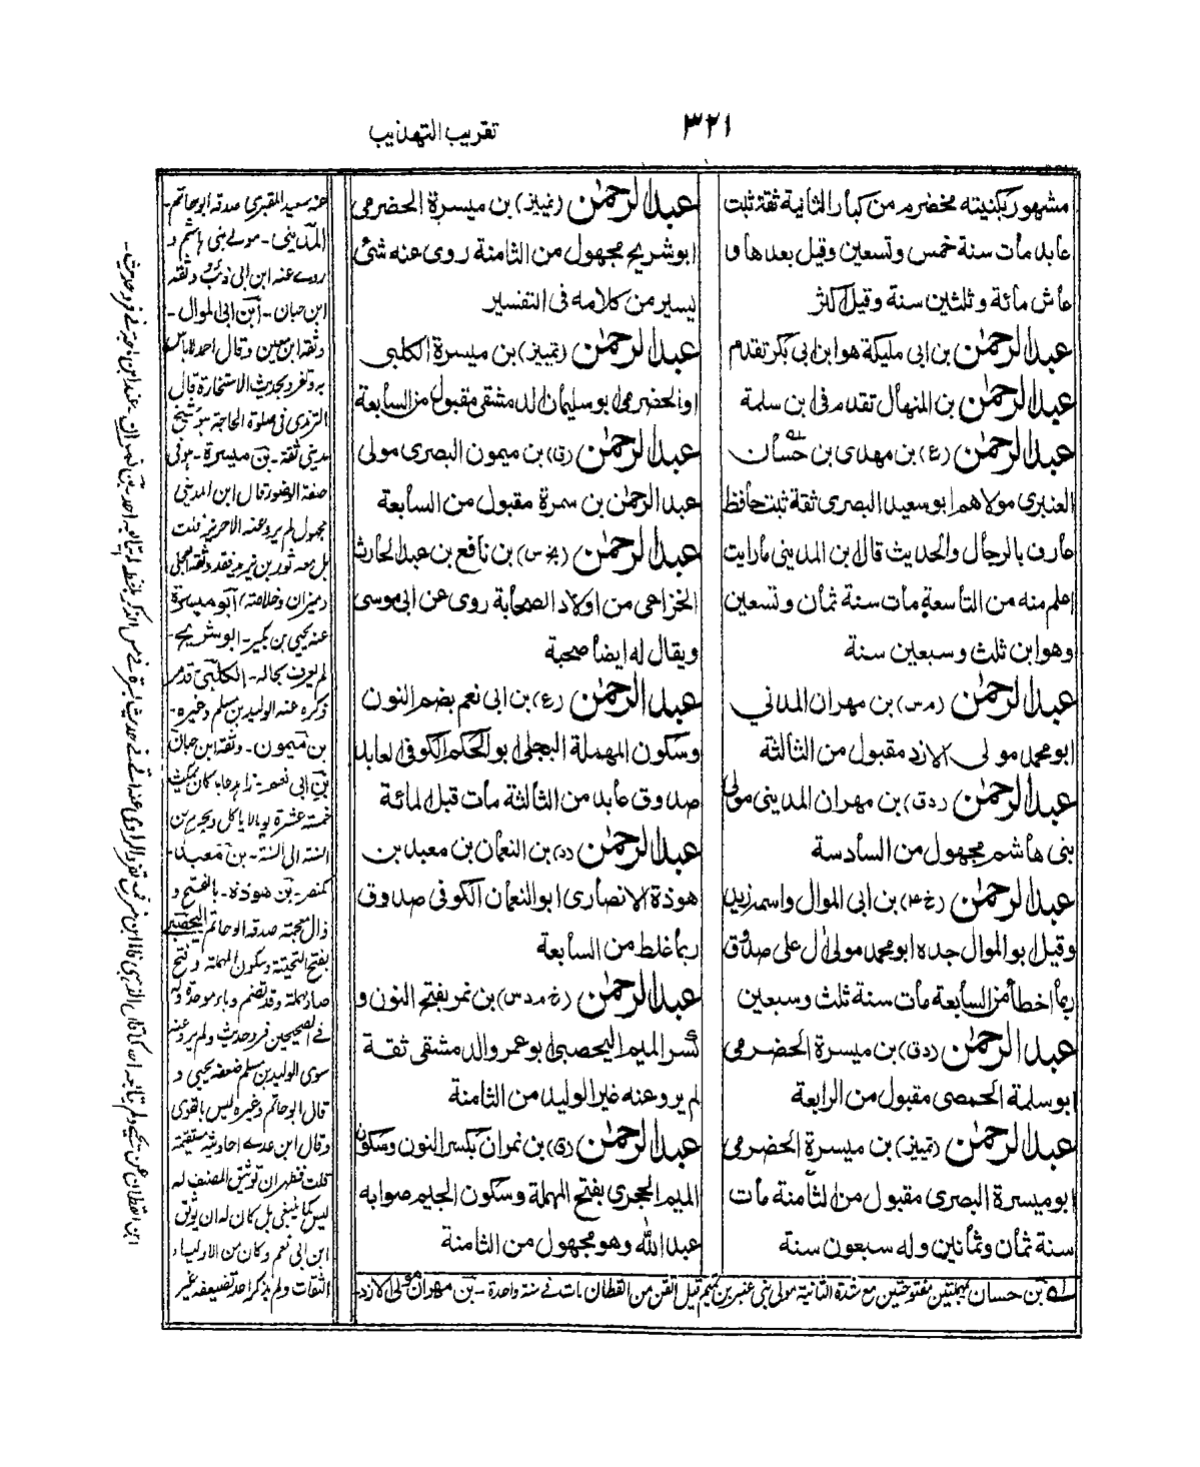 ٣٢١
تقريب التهذيب
مشهور بكنيته مخضرم من كبار الثانية ثقة ثبت
عابد مات سنة خمس وتسعين وقيل بعدها و
عاش مائة وثلثين سنة وقيل اكثر
عبد الرحمٰن بن ابى مليكة هو ابن ابى بكر تقدم
عبد الرحمٰن بن المنهال تقدم فى ابن سلمة
عبد الرحمٰن (ع) بن مهدى بن حسان
العنبرى مولاهم ابو سعيد البصرى ثقة ثبت حافظ
عارف بالرجال والحديث قال ابن المدينى ما رايت
اعلم منه من التاسعة مات سنة ثمان وتسعين
وهو ابن ثلث وسبعين سنة
عبد الرحمٰن (م س) بن مهران المدني
ابو محمد مولى الازد مقبول من الثالثة
عبد الرحمٰن (د ق) بن مهران المدينى مولى
بنى هاشم مجهول من السادسة
عبد الرحمٰن (خ ٤) بن ابى الموال واسمه زيد
وقيل ابو الموال جده ابو محمد مولى اٰل على صدوق
ربما اخطأ من السابعة مات سنة ثلث وسبعين
عبد الرحمٰن (د ق) بن ميسرة الحضرمى
ابو سلمة الحمصى مقبول من الرابعة
عبد الرحمٰن (تمييز) بن ميسرة الحضرمى
ابو ميسرة البصرى مقبول من الثامنة مات
سنة ثمان وثمانين وله سبعون سنة
عبد الرحمٰن (تمييز) بن ميسرة الحضرمى
ابو شريح مجهول من الثامنة روى عنه شئ
يسير من كلامه فى التفسير
عبد الرحمٰن (تمييز) بن ميسرة الكلبى
او الحضرمى ابو سليمان الدمشقى مقبول من السابعة
عبد الرحمٰن (ق) بن ميمون البصرى مولى
عبد الرحمٰن بن سمرة مقبول من السابعة
عبد الرحمٰن (بخ س) بن نافع بن عبد الحارث
الخزاعى من اولاد الصحابة روى عن ابى موسى
ويقال له ايضا صحبة
عبد الرحمٰن (ع) بن ابى نعم بضم النون
وسكون المهملة البجلى ابو الحكم الكوفى العابد
صدوق عابد من الثالثة مات قبل المائة
عبد الرحمٰن (د) بن النعمان بن معبد بن
هوذة الانصارى ابو النعمان الكوفى صدوق
ربما غلط من السابعة
عبد الرحمٰن (خ م د س) بن نمر بفتح النون و
كسر الميم اليحصبى ابو عمرو الدمشقى ثقة
لم يرو عنه غير الوليد من الثامنة
عبد الرحمٰن (ق) بن نمران بكسر النون وسكون
الميم الحجرى بفتح المهملة وسكون الجيم صوابه
عبد الله وهو مجهول من الثامنة
عنه سعيد المقبرى صدقه ابو حاتم -
المدينى - مولى بنى هاشم و
روى عنه ابن ابى ذئب وثقه
ابن حبان - ابن ابى الموال -
وثقه ابن معين وقال احمد لا باس
به وتفرد بحديث الاستخارة قال
الترمذى فى صلوة الحاجة هو شيخ
مدينى ثقة - بن ميسرة -
قال ابن المدينى
مجهول لم يرو عنه الا حريز قلت
بل معه ثور بن يزيد فقد وثقه العجلى
ميزان وخلاصة، ابو ميسرة
عنه يحيى بن بكير - ابو شريح -
لم يعرف بحاله - الكلبى قد مر
ذكره عنه الوليد بن مسلم وغيره -
بن ميمون - وثقه ابن حبان
بن ابى نعم زاهد عابد كان يمكث
خمسة عشرة يوما لا ياكل ويحرم من
السنة الى السنة - بن معبد -
كمنصر - بن هوذة - بالفتح و
ذال معجمة صدقه ابو حاتم اليحصبى
بفتح التحتية وسكون المهملة وفتح
صاد مهملة وقد تضم وباء موحدة وله
فى الصحيحين فرد حديث ولم يرو عنه
سوى الوليد بن مسلم ضعفه يحيى و
قال ابو حاتم وغيره ليس بالقوى
وقال ابن عدى احاديثه مستقيمة
قلت فظهر ان توثيق المصنف له
ليس كما ينبغى بل كان له ان يوثق
ابن ابى نعم وكان من الاولياء
الثقات ولم يذكر احد تضعيفه غير
ابن القطان عن يحيى
له بن حسان بمهملتين مفتوحتين مع شدة الثانية مولى بنى عنبر بن تميم قيل اتقن من القطان مات فى سنة واحدة - بن مهران مولى الازد -